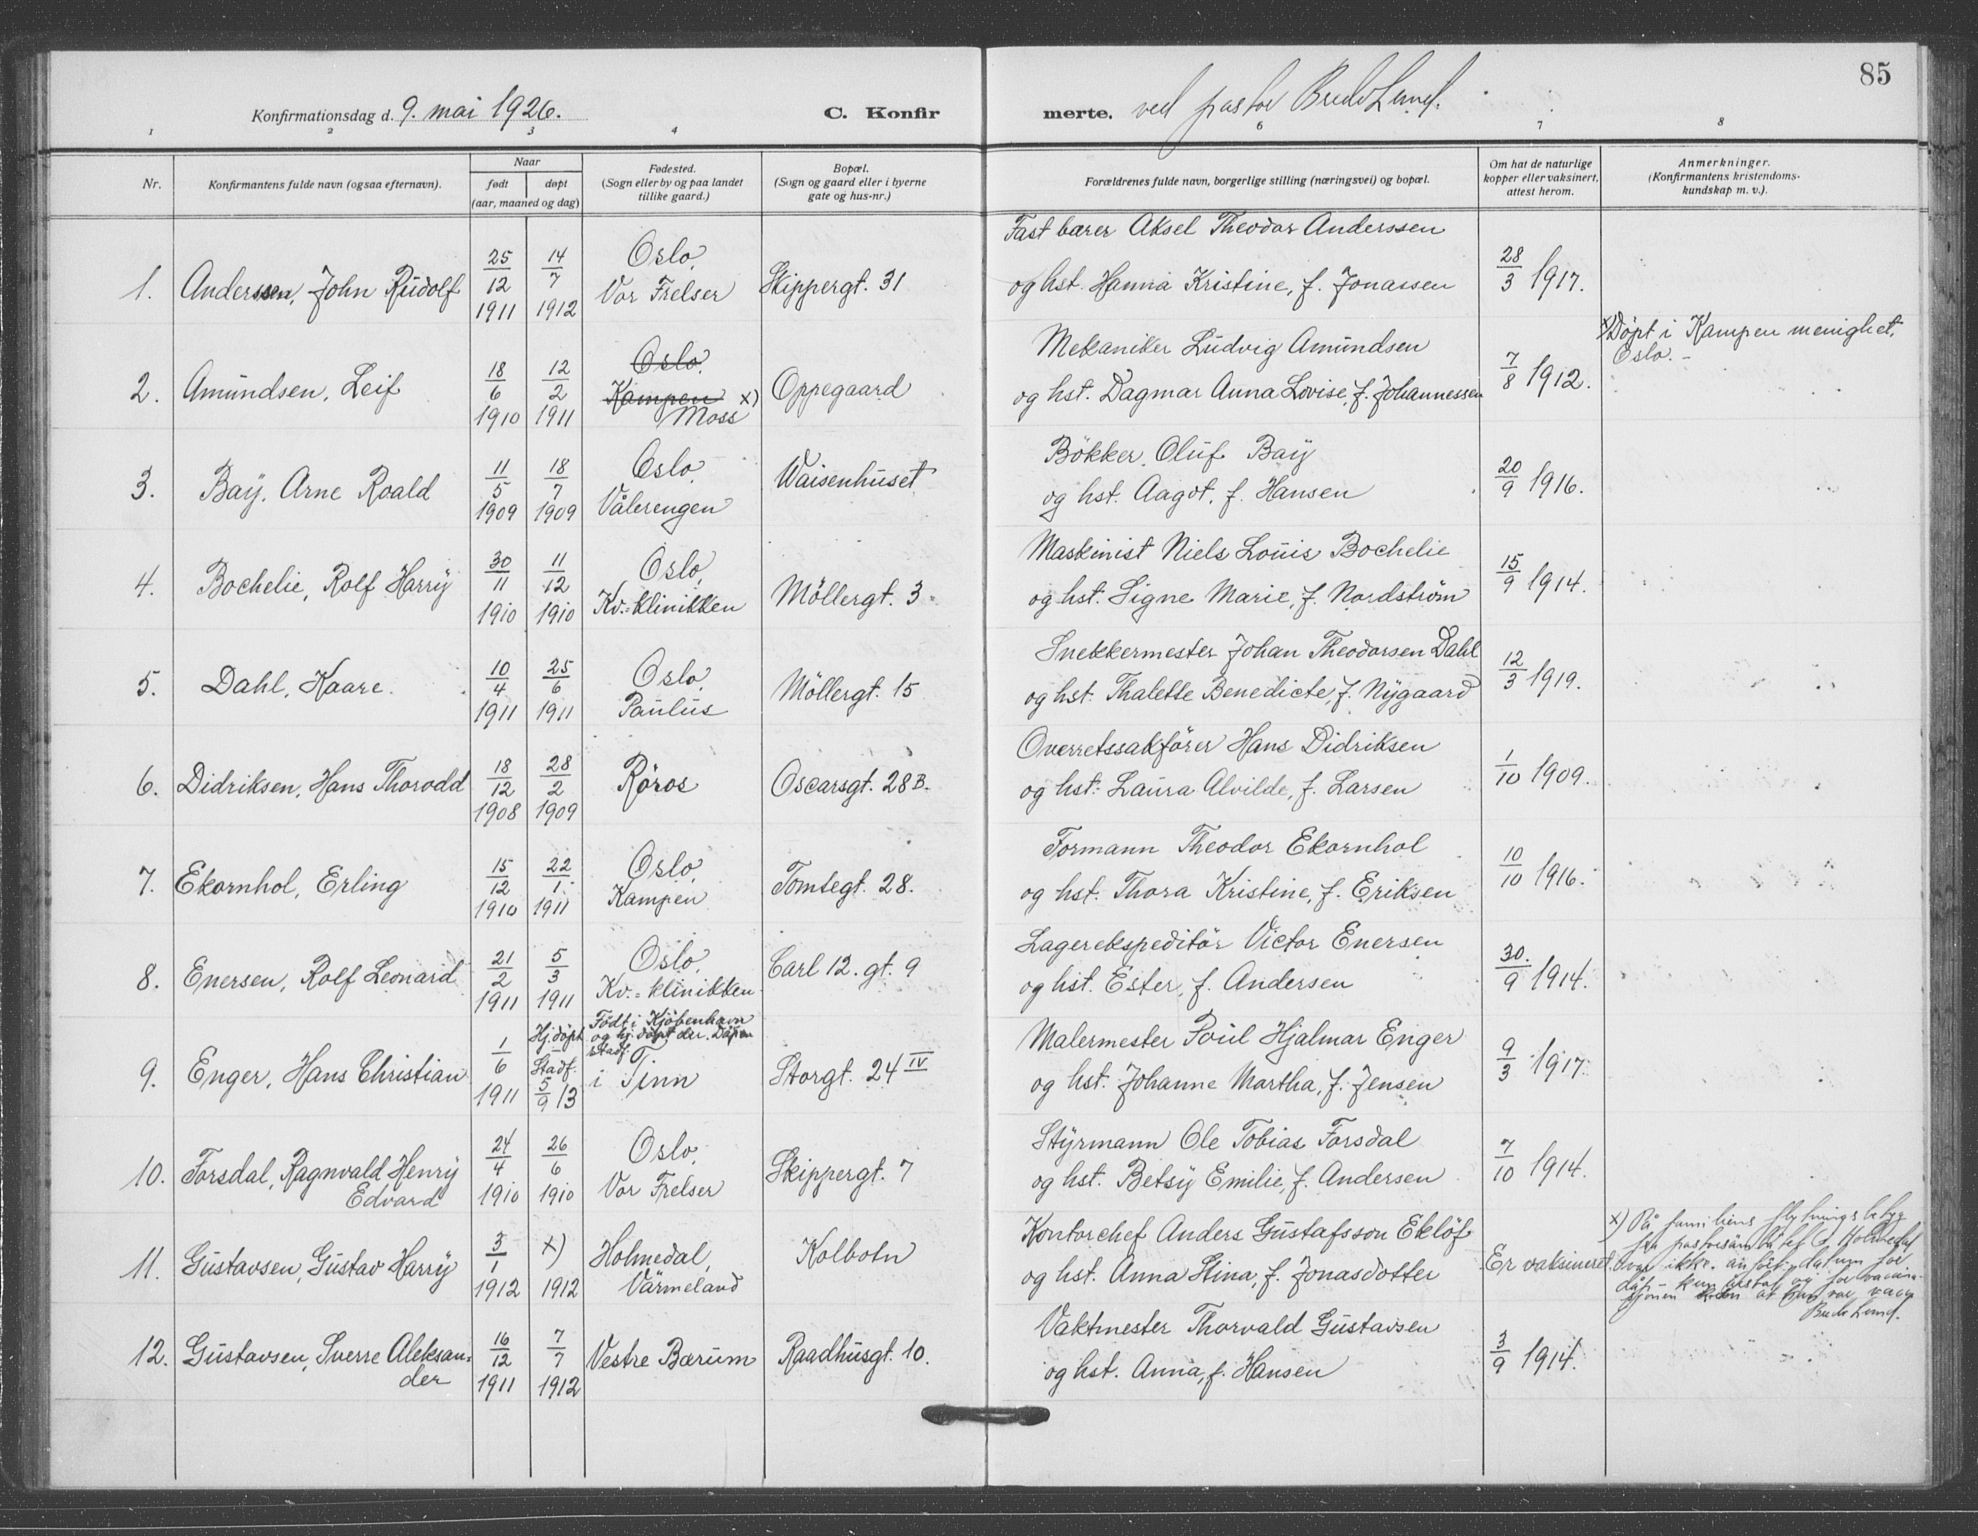 85
Konfirmationsdag d. 9. mai 1926. C. Konfirmerte. ved pastor Lund.
1 2 3 4 6 7 8
Nr. Konfirmantens fulde navn (ogsaa efternavn). Naar født døpt (aar, maaned og dag) Fødested. (Sogn eller by og paa landet tillike gaard.) Bopæl. (Sogn og gaard eller i byerne gate og hus-nr.) Forældrenes fulde navn, borgerlige stilling (næringsvei) og bopæl. Om hat de naturlige kopper eller vaksinert, attest herom. Anmerkninger. (Konfirmantens kristendomskundskap m. v.).
1. Anderssen, John Rudolf 25/12 1911 14/7 1912 Oslo, Vor Frelser Skippergt. 31 Fast bærer Aksel Theodor Anderssen og hst. Hanna Kristine, f. Jonassen 28/3 1917.
2. Amundsen, Leif 18/6 1910 12/2 1911 Oslo, Kampen x) Moss Oppegaard Mekaniker Ludvig Amundsen og hst. Dagmar Anna Lovise, f. Johannessen 7/8 1912. x) Döpt i Kampen menighet, Oslo. –
3. Baÿ, Arne Roald 11/5 1909 18/7 1909 Oslo, Vålerengen Waisenhuset Bökker Oluf Baÿ og hst. Aagot, f. Hansen 20/9 1916.
4. Bochelie, Rolf Harry 30/11 1910 11/12 1910 Oslo, Kv.=klinikken Möllergt. 3. Maskinist Niels Louis Bochelie og hst. Signe Marie, f. Nordström 15/9 1914.
5. Dahl, Kaare. 10/4 1911 25/6 1911 Oslo, Paulus Möllergt. 15 Snekkermester Johan Theodorsen Dahl og hst. Thalette Benedicte, f. Nygaard 12/3 1919.
6. Didriksen, Hans Thorodd 18/12 1908 28/2 1909 Röros Oscarsgt. 28 B. Overretssakförer Hans Didriksen og hst. Laura Alvilde, f. Larsen 1/10 1909.
7. Ekornhol, Erling 15/12 1910 22/1 1911 Oslo, Kampen Tomtegt. 28. Formann Theodor Ekornhol og hst. Thora Kristine, f. Eriksen 10/10 1916.
8. Enersen, Rolf Leonard 21/2 1911 5/3 1911 Oslo, Kv.=klinikken Carl 12. gt. 9 Lagerekspeditör Victor Enersen og hst. Ester, f. Andersen 30./9 1914.
9. Enger, Hans Christian 1/6 1911 Hj.döpt – Stadf. 5/9 13 Født i Kjöbenhavn og hj. döpt der. Dåpen stadf. i Tinn Storgt. 24 IV Malermester Poul Hjalmar Enger og hst. Johanne Martha, f. Jensen 9/3 1917.
10. Forsdal, Ragnvald Henry Edvard 24/4 1910 26/6 1910 Oslo, Vor Frelser Skippergt. 7 Styrmann Ole Tobias Forsdal og hst. Betsy Emilie, f. Andersen 7/10 1914.
11. Gustavsen, Gustav Harry 3/1 1912 x) 1912 Holmedal, Värmeland Kolbotn Kontorchef Anders Gustafsson Eklöf og hst. Anna Stina, f. Jonasdotter Er vaksineret. x) På familiens flytningsbetyg fra pastorsämbetet i Holmedal var ikke anfört datum for dåp – kun at han var vacc.
Lund.
12. Gustavsen, Sverre Aleksander 16/12 1911 7/7 1912 Vestre Bærum Raadhusgt. 10. Vaktmester Thorvald Gustavsen og hst. Anna, f. Hansen 3/9 1914.